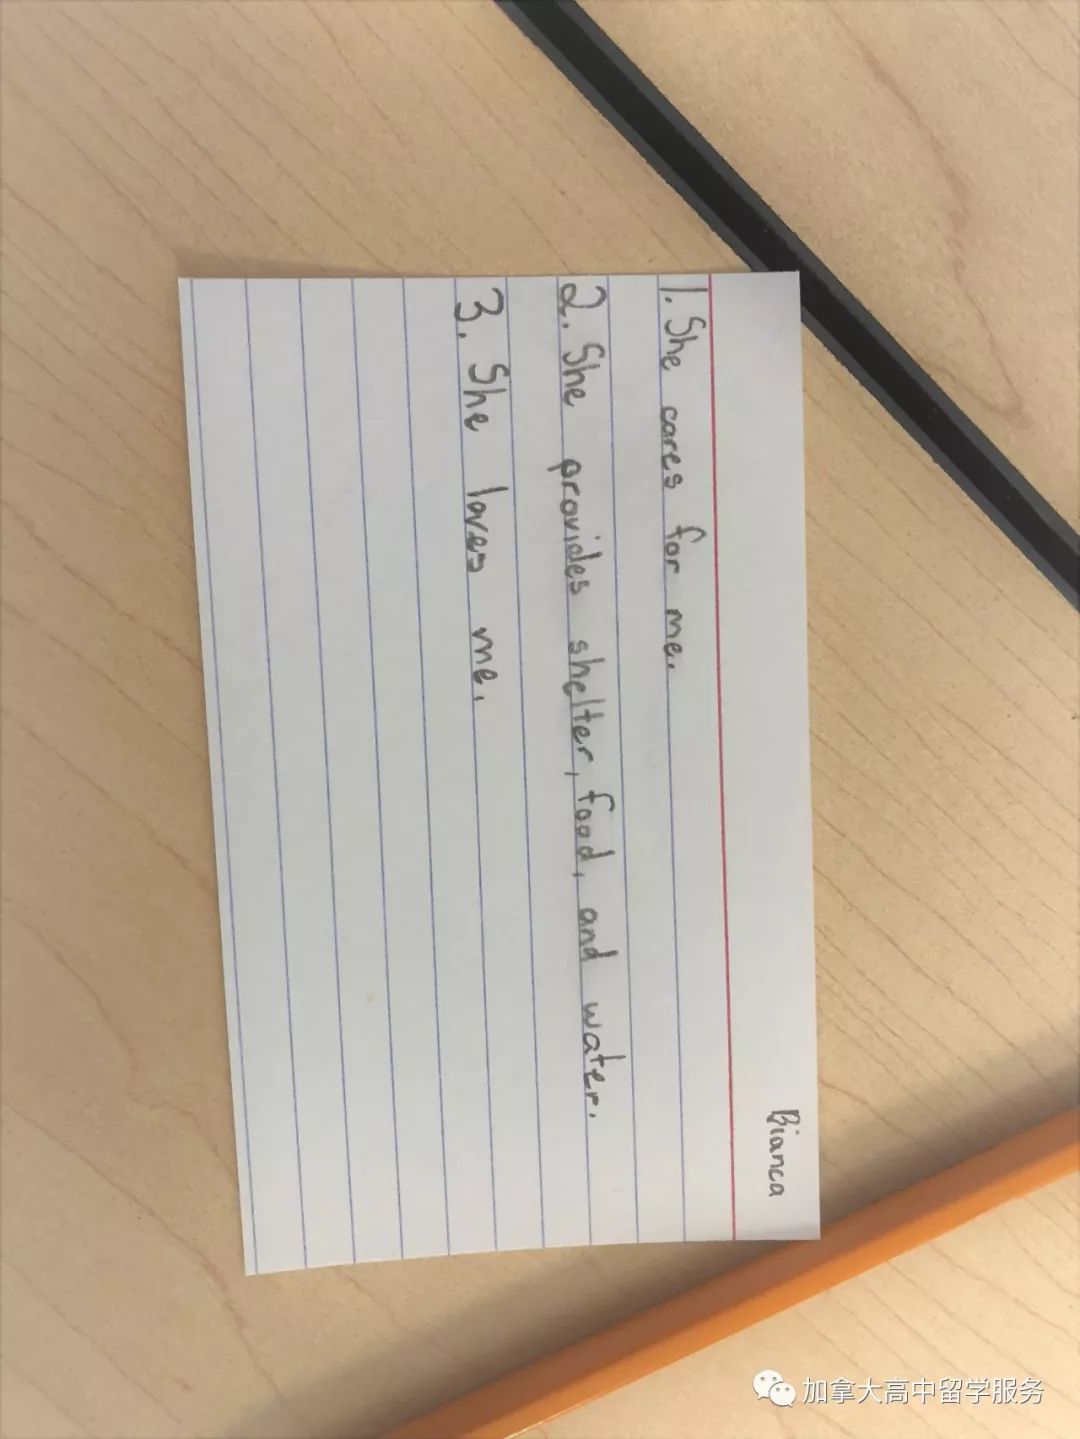 Bianca
1. She cares for me.
2. She provides shelter, food, and water.
3. She loves me.
加拿大高中留学服务